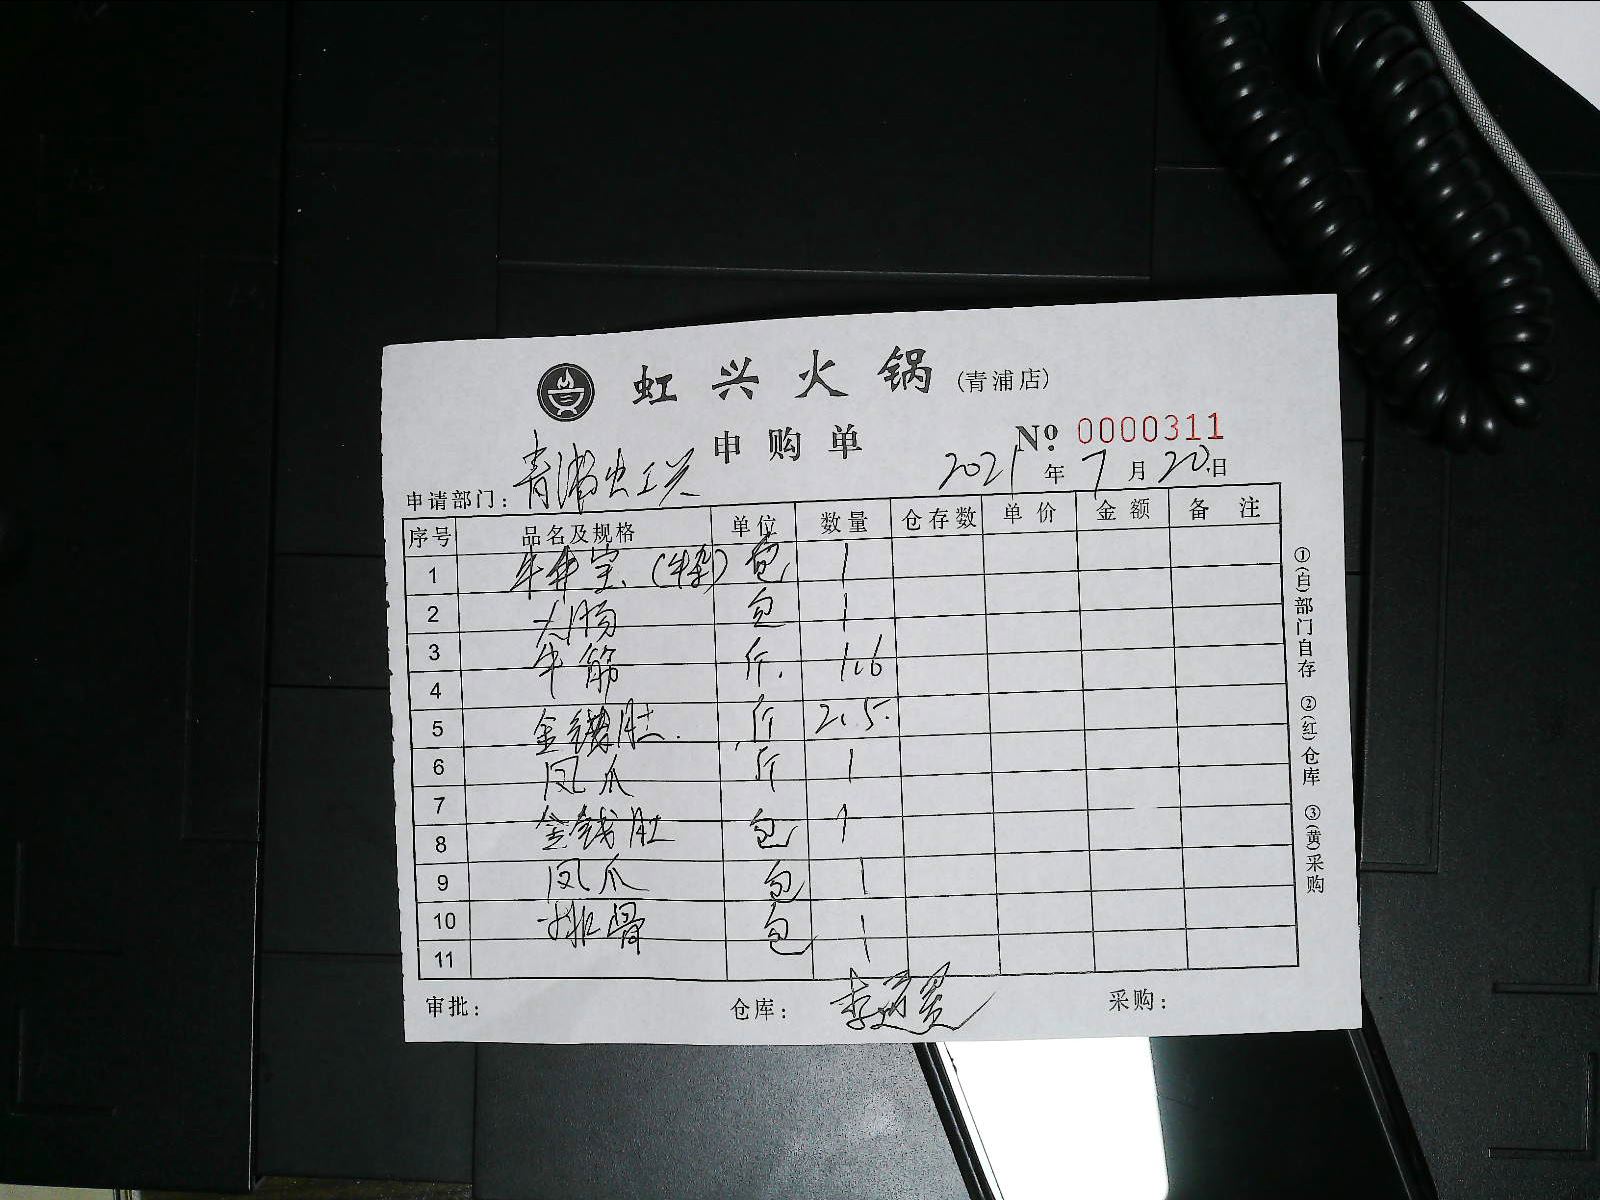 虹兴火锅(青浦店)
申购单
No 0000311
申请部门: 青浦虹兴
2021年7月20日
序号 品名及规格 单位 数量 仓存数 单价 金额 备注
1 (牛杂) 包 1
2 大肠 包 1
3 牛筋 斤 1.6
4
5 金钱肚 斤 2.5
6 凤爪 斤 1
7
8 金钱肚 包 1
9 凤爪 包 1
10 排骨 包 1
11
审批: 仓库: 采购:
①(白)部门自存 ②(红)仓库 ③(黄)采购